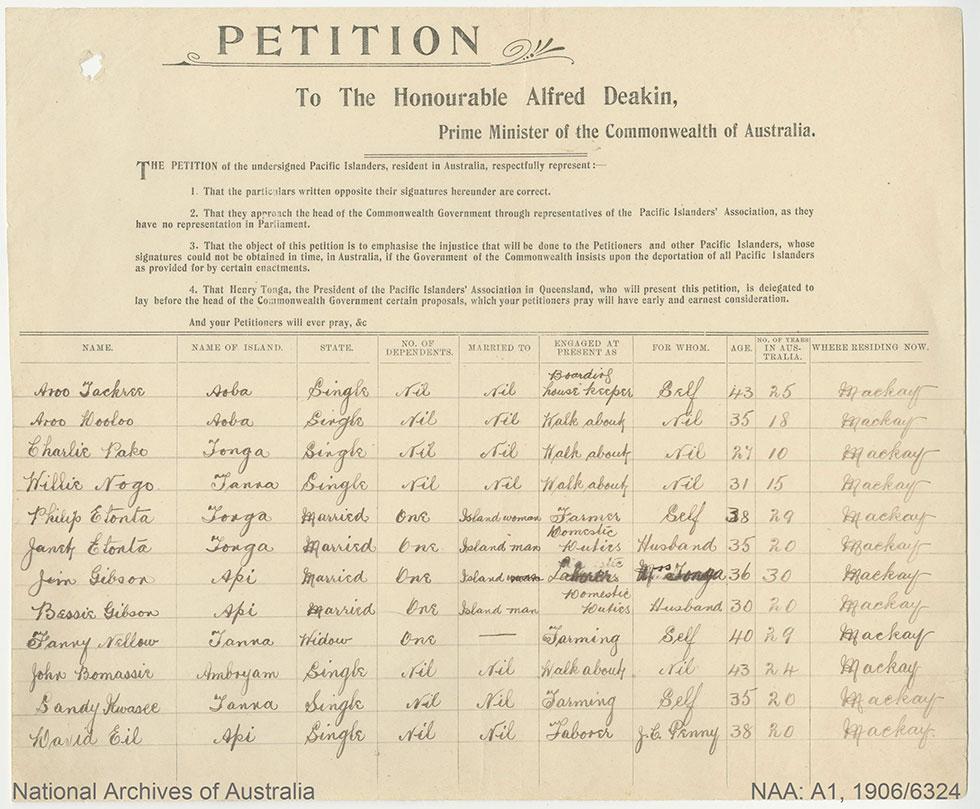 PETITION
To The Honourable Alfred Deakin,
Prime Minister of the Commonwealth of Australia.
THE PETITION of the undersigned Pacific Islanders, resident in Australia, respectfully represent:—
1. That the particulars written opposite their signatures hereunder are correct.
2. That they approach the head of the Commonwealth Government through representatives of the Pacific Islanders' Association, as they
have no representation in Parliament.
3. That the object of this petition is to emphasise the injustice that will be done to the Petitioners and other Pacific Islanders, whose
signatures could not be obtained in time, in Australia, if the Government of the Commonwealth insists upon the deportation of all Pacific Islanders
as provided for by certain enactments.
4. That Henry Tonga, the President of the Pacific Islanders' Association in Queensland, who will present this petition, is delegated to
lay before the head of the Commonwealth Government certain proposals, which your petitioners pray will have early and earnest consideration.
And your Petitioners will ever pray, &c
NAME. NAME OF ISLAND. STATE. NO. OF DEPENDENTS. MARRIED TO ENGAGED AT PRESENT AS FOR WHOM. AGE. NO. OF YEARS IN AUS-TRALIA. WHERE RESIDING NOW.
Aroo Tackree Aoba Single Nil Nil Boarding house keeper Self 43 25 Mackay
Aroo Wooloo Aoba Single Nil Nil Walk about Nil 35 18 Mackay
Charlie Pako Tonga Single Nil Nil Walk about Nil 27 10 Mackay
Willie Nogo Tanna Single Nil Nil Walk about Nil 31 15 Mackay
Philip Etonta Tonga Married One Island woman Farmer Self 38 29 Mackay
Janet Etonta Tonga Married One Island man Domestic Duties Husband 35 20 Mackay
Jim Gibson Api Married One Island Tonga 36 30 Mackay
Bessie Gibson Api Married One Island man Domestic Duties Husband 30 20 Mackay
Fanny Nellow Tanna Widow One — Farming Self 40 29 Mackay
John Bomassie Ambryam Single Nil Nil Walk about Nil 43 24 Mackay
Sandy Kwasee Tanna Single Nil Nil Farming Self 35 20 Mackay
David Eil Api Single Nil Nil Laborer J.C. Penny 38 20 Mackay.
National Archives of Australia NAA: A1, 1906/6324